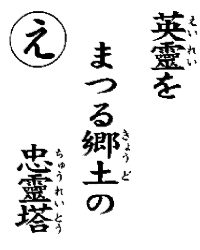 英靈を
まつる郷土の
忠靈塔
え